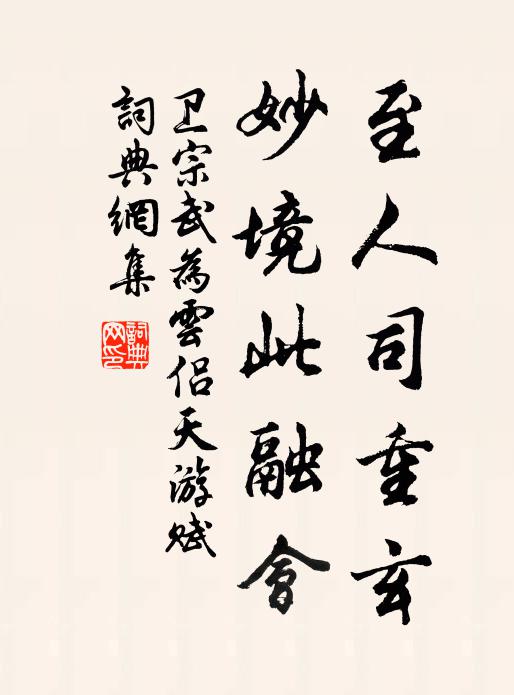 至人司重玄
妙境此融會
卫宗武為雲侣天游赋
詞典網集
詞典网印